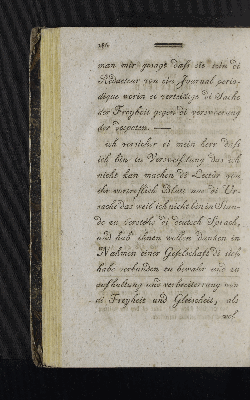 186
man mir gesagt daß sie sein di
Redacteur von ein Journal perio-
dique worin er vertheidige di Sache
der Freyheit gegen di verswerung
der despoten. —
ich versicher ei mein herr daß
ich bin in Versweiflung das ich
nicht kan machen di Lectur von
ihr vortreflich Blatt aus di Ur-
sache das weil ich nicht bin in Stan-
de zu verstehe di deutsch Sprach,
und hab ihnen wollen danken im
Nahmen einer Geselschaft di sich
habe verbunden zu bewahr und zu
aufhaltung und verbreitterung von
di Freyheit und Gleicheit, als
wol